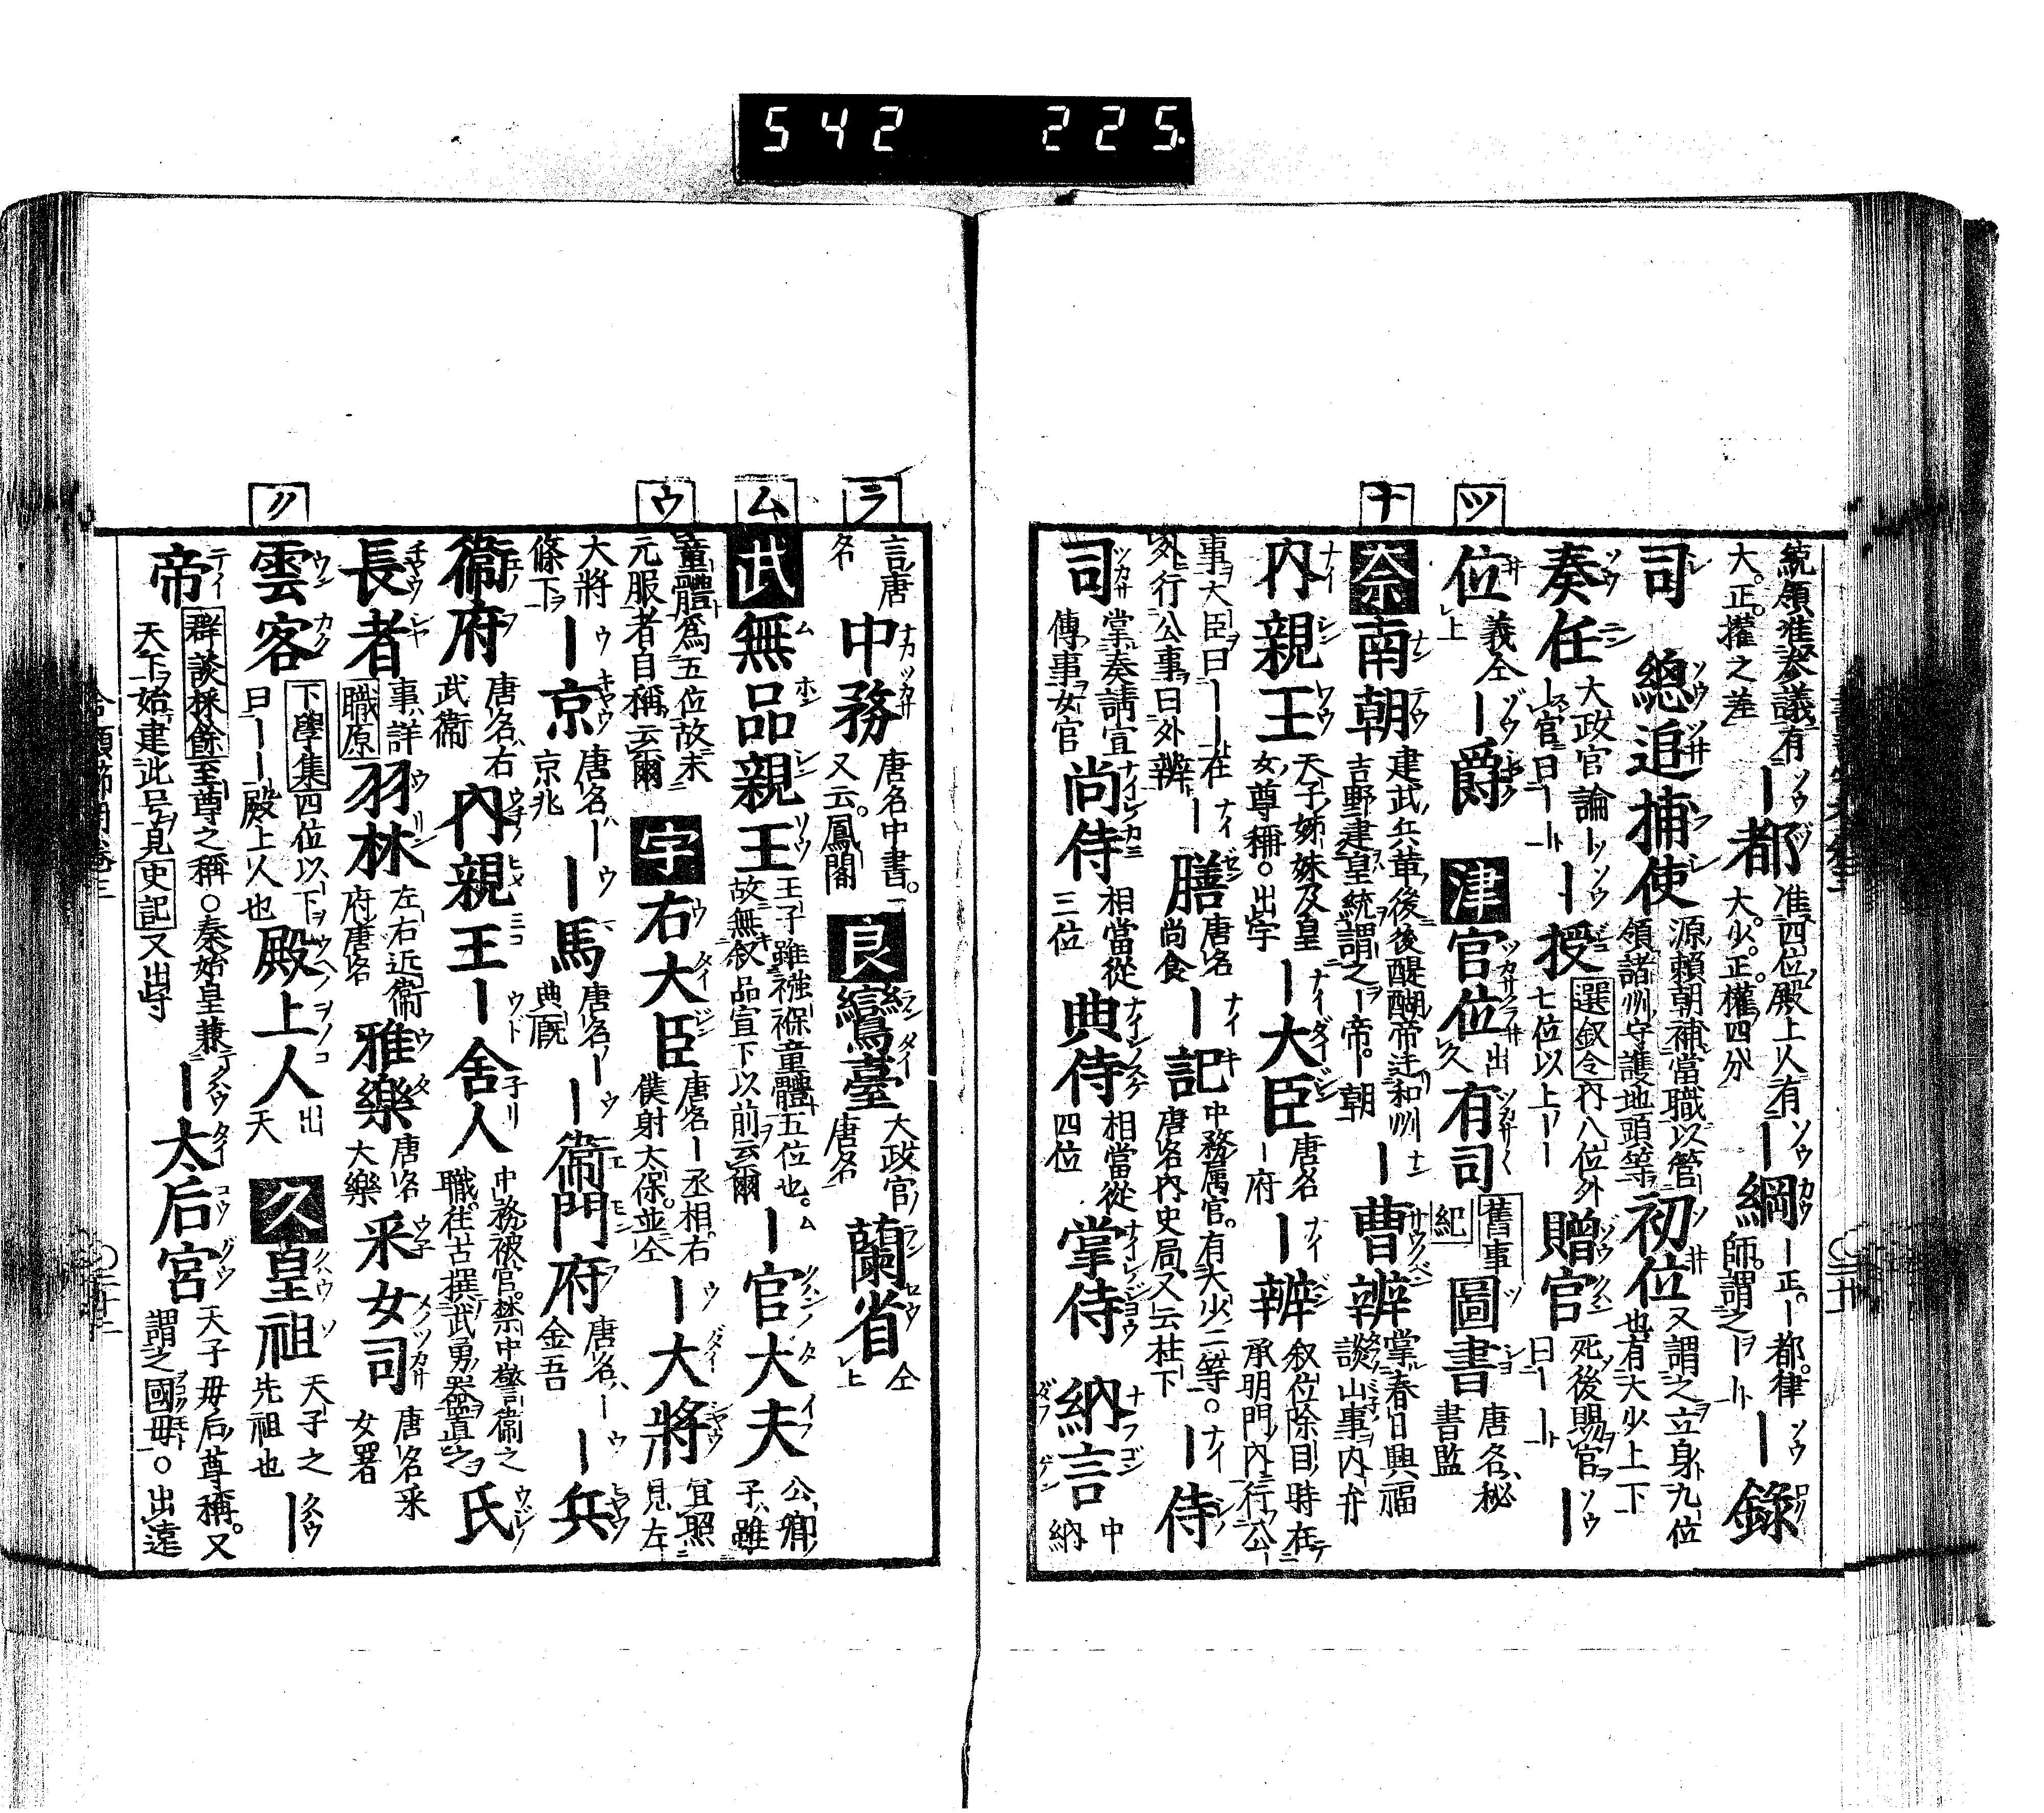 542 225
ツ
ナ
統領准参議有 大正權之差 ー都 准四位殿上人有 大少正權四分 ー綱 ー正ー都律 師謂之ーー ー録
司 總追捕使 源頼朝補當職以管 領諸州守護地頭等 初位 又謂之立身九位 也有大少上下
奏任 大政官論ー 上官曰ーー ー授 選叙令 内八位外 七位以上ーー 贈官 死後賜官 曰ーー ー
位 義仝 上 ー爵 津 官位 出久 有司 舊事紀 圖書 唐名秘 書監
奈 南朝 建武兵革後後醍醐帝迁和州 吉野建皇統謂之ー帝朝 ー曹辨 掌春日興福 談山事内弁
内親王 天子姉妹及皇 女尊稱○出宇 ー大臣 唐名 ー府 ー辨 叙位除目時在 承明門内行公
事大臣曰ーー在 外行公事曰外辨 ー膳 唐名 尚食 ー記 中務属官有大少二等○ 唐名内史局又云柱下 ー侍
司 掌奏請宣 傳事女官 尚侍 相當從 三位 典侍 相當從 四位 掌侍 納言 中 納
ラ
ム
ウ
ク
言唐 名 中務 唐名中書 又云鳳閣 良 鸞臺 大政官 唐名 蘭省 仝 上
武 無品親王 王子雖襁褓童體五位也 故無叙品宣下以前云爾 ー官大夫 公卿 子雖
童體為五位故未 元服者自稱云爾 宇 右大臣 唐名ー丞相右 僕射太保並仝 ー大將 宜照 見左
大將 條下 ー京 唐名ー 京兆 ー馬 唐名ー 典厩 ー衞門府 唐名ー 金吾 ー兵
衞府 唐名右 武衞 内親王 ー舎人 中務被官禁中警衞之 職往古撰武勇器置之 氏
長者 事詳 職原 羽林 左右近衞 府唐名 雅樂 唐名 大樂 采女司 唐名采 女署
雲客 下學集 四位以下 曰ーー殿上人也 殿上人 出 天 久 皇祖 天子之 先祖也 ー
帝 群談採餘 至尊之稱○秦始皇兼 天下始建此号見 史記 又出寺 ー太后宮 天子母后尊稱又 謂之國母○出遠